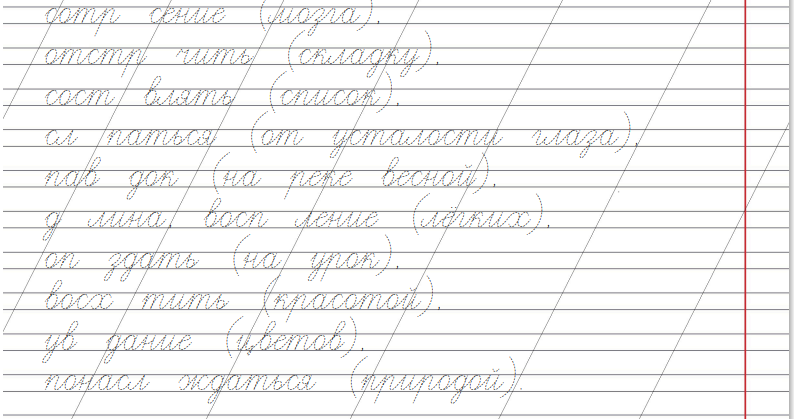 сотр сение (мозга),
отстр чить (складку),
сост влять (список),
сл паться (от усталости глаза),
пав док (на реке весной),
д лина, восп ление (лёгких),
оп здать (на урок),
восх тить (красотой),
ув дание (цветов),
понасл ждаться (природой).